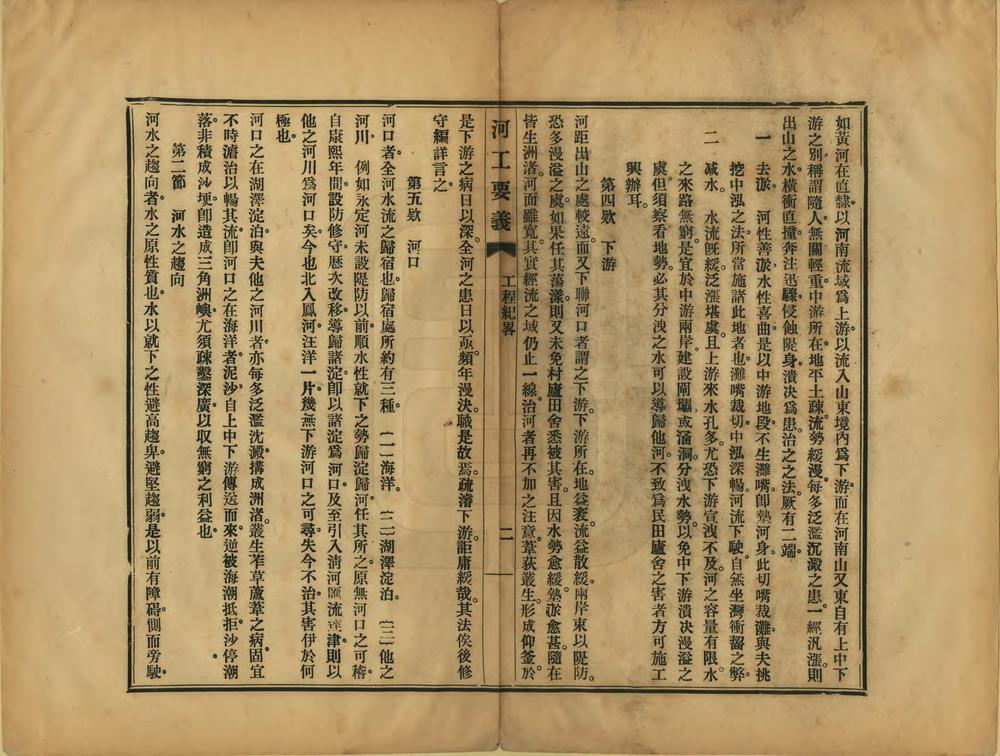 如黃河在直隸以河南流域爲上游以流入山東境內爲下游而在河南山又東自有上中下
游之別稱謂隨人無關輕重中游所在地平土疎流勢緩漫每多泛濫沉澱之患一經汎漲則
出山之水橫衝直撞奔注迅驟侵蝕隄身潰决爲患治之之法厥有二端
一　去淤　河性善淤水性喜曲是以中游地段不生灘嘴卽墊河身此切嘴裁灘與夫挑
挖中泓之法所當施諸此地者也灘嘴裁切中泓深暢河流下駛自無坐灣衝齧之弊
二　減水　水流旣緩泛漲堪虞且上游來水孔多尤恐下游宣洩不及河之容量有限水
之來路無窮是宜於中游兩岸建設閘壩或涵洞分洩水勢以免中下游潰决漫溢之
虞但須察看地勢必其分洩之水可以導歸他河不致爲民田廬舍之害者方可施工
興辦耳
第四欵　下游
河距出山之處較遠而又下聯河口者謂之下游下游所在地益衺流益散緩兩岸東以隄防
恐多漫溢之處如果任其蕩漾則又未免村廬田舍悉被其害且因水勢愈緩墊淤愈甚隨在
皆生洲渚河面雖寬其實經流之域仍止一線治河者再不加之注意葦荻叢生形成仰釜於
河工要義　工程紀畧　二一
是下游之病日以深全河之患日以亟頻年漫决職是故焉疏濬下游詎庸緩哉其法俟後修
守編詳言之
第五欵　河口
河口者全河水流之歸宿也歸宿處所約有三種（一）海洋（二）湖澤淀泊（三）他之
河川　例如永定河未設隄防以前順水性就下之勢歸淀歸河任其所之原無河口之可稽
自康熙年間設防修守歷次改移導歸諸淀卽以諸淀爲河口及至引入淸河匯流達津則以
他之河川爲河口矣今也北入鳳河汪洋一片幾無下游河口之可尋失今不治其害伊於何
極也
河口之在湖澤淀泊與夫他之河川者亦每多泛濫沈澱搆成洲渚叢生苲草蘆葦之病固宜
不時濬治以暢其流卽河口之在海洋者泥沙自上中下游傳送而來逆被海潮抵拒沙停潮
落非積成沙埂卽造成三角洲嶼尤須疎鑿深廣以取無窮之利益也
第二節　河水之趨向
河水之趨向者水之原性質也水以就下之性避高趨卑避堅趨弱是以前有障碍側而旁駛